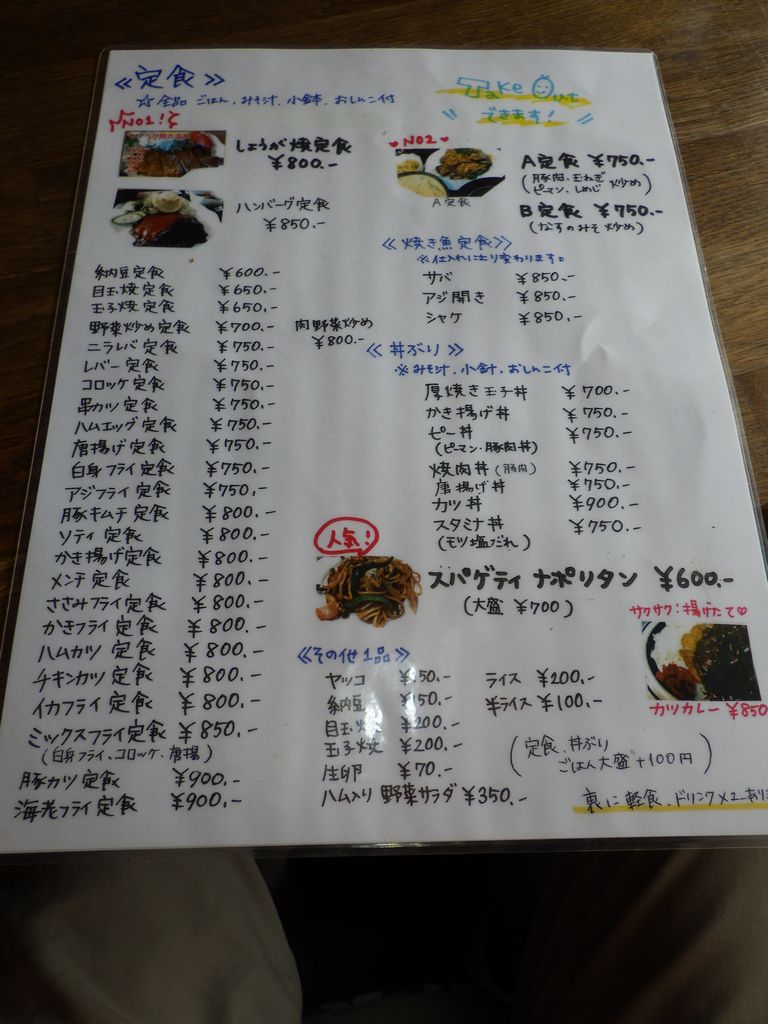 ≪定食≫
☆全品 ごはん、みそ汁、小鉢、おしんこ付
Take Out
できます!
NO1!
しょうが焼定食
¥800.-
ハンバーグ定食
¥850.-
NO2
A定食
A定食 ¥750.-
(豚肉、玉ねぎ
ピーマン、しめじ 炒め)
B定食 ¥750.-
(なすのみそ炒め)
納豆定食 ¥600.-
目玉焼定食 ¥650.-
玉子焼定食 ¥650.-
野菜炒め定食 ¥700.- 肉野菜炒め
¥800.-
ニラレバ定食 ¥750.-
レバー定食 ¥750.-
コロッケ定食 ¥750.-
串カツ定食 ¥750.-
ハムエッグ定食 ¥750.-
唐揚げ定食 ¥750.-
白身フライ定食 ¥750.-
アジフライ定食 ¥750.-
豚キムチ定食 ¥800.-
ソティ定食 ¥800.-
かき揚げ定食 ¥800.-
メンチ定食 ¥800.-
ささみフライ定食 ¥800.-
かきフライ定食 ¥800.-
ハムカツ定食 ¥800.-
チキンカツ定食 ¥800.-
イカフライ定食 ¥800.-
ミックスフライ定食 ¥850.-
(白身フライ、コロッケ、唐揚)
豚カツ定食 ¥900.-
海老フライ定食 ¥900.-
≪焼き魚定食≫
※仕入れにより変わります。
サバ ¥850.-
アジ開き ¥850.-
シャケ ¥850.-
≪丼ぶり≫
※みそ汁、小鉢、おしんこ付
厚焼き玉子丼 ¥700.-
かき揚げ丼 ¥750.-
ピー丼 ¥750.-
(ピーマン・豚肉丼)
焼肉丼(豚肉) ¥750.-
唐揚げ丼 ¥750.-
カツ丼 ¥900.-
スタミナ丼 ¥750.-
(モツ塩だれ)
人気!
スパゲティ ナポリタン ¥600.-
(大盛 ¥700)
サクサク!揚げたて♡
カツカレー ¥850
≪その他1品≫
ヤッコ 50.-
納豆 50.-
目玉 ¥200.-
玉子焼 ¥200.-
生卵 ¥70.-
ハム入り 野菜サラダ ¥350.-
ライス ¥200.-
半ライス ¥100.-
(定食、丼ぶり
ごはん大盛+100円)
裏に軽食、ドリンクメニューあり